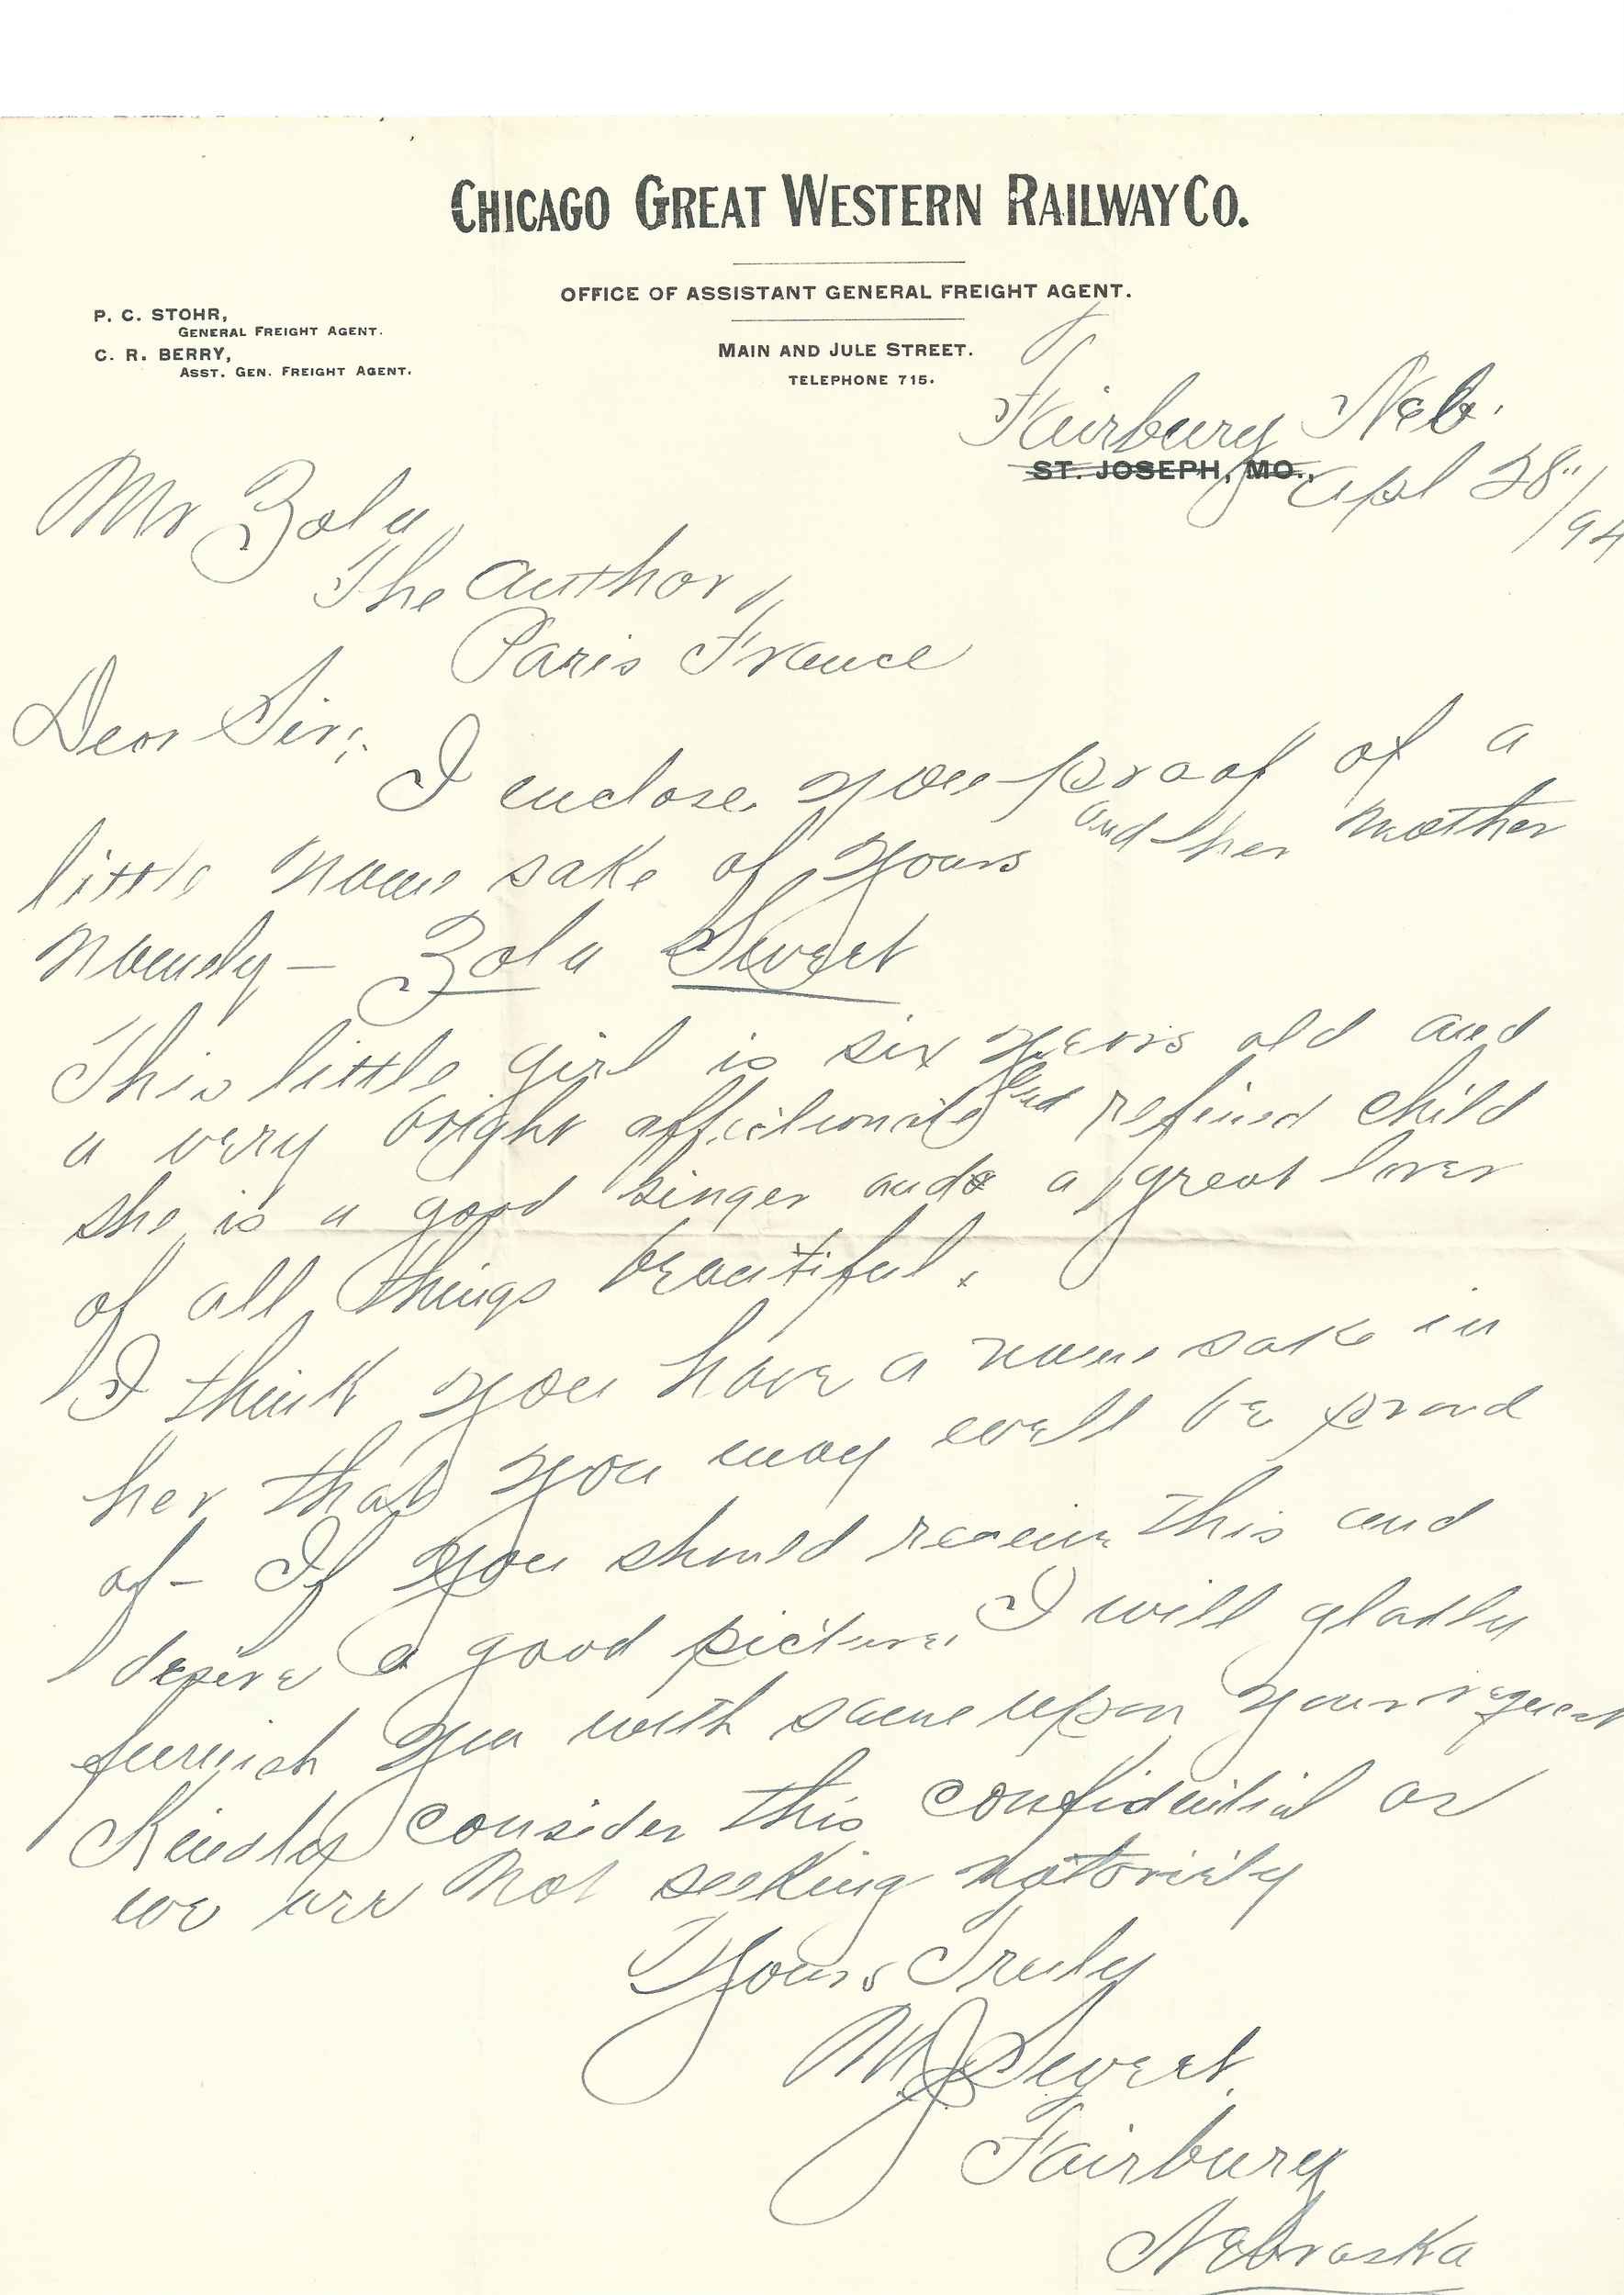 CHICAGO GREAT WESTERN RAILWAY CO.
OFFICE OF ASSISTANT GENERAL FREIGHT AGENT.
P. C. STOHR,
GENERAL FREIGHT AGENT.
C. R. BERRY,
ASST. GEN. FREIGHT AGENT.
MAIN AND JULE STREET.
TELEPHONE 715.
Fairbury Neb.
ST. JOSEPH, MO., Apl 28"/94
Mr Zola
The Author,
Paris France
Dear Sir:
I enclose you proof of a
little name sake of yours and her mother
namely — Zola
This little girl is six years old and
a very bright affectionate and refined child
she is a good singer and a great lover
of all things beautiful.
I think you have a name sake in
her that you may well be proud
of – If you should receive this and
desire a good picture, I will gladly
furnish you with same upon your request
Kindly consider this confidential as
we are not seeking notoriety
Yours Truly
Fairbury
Nebraska